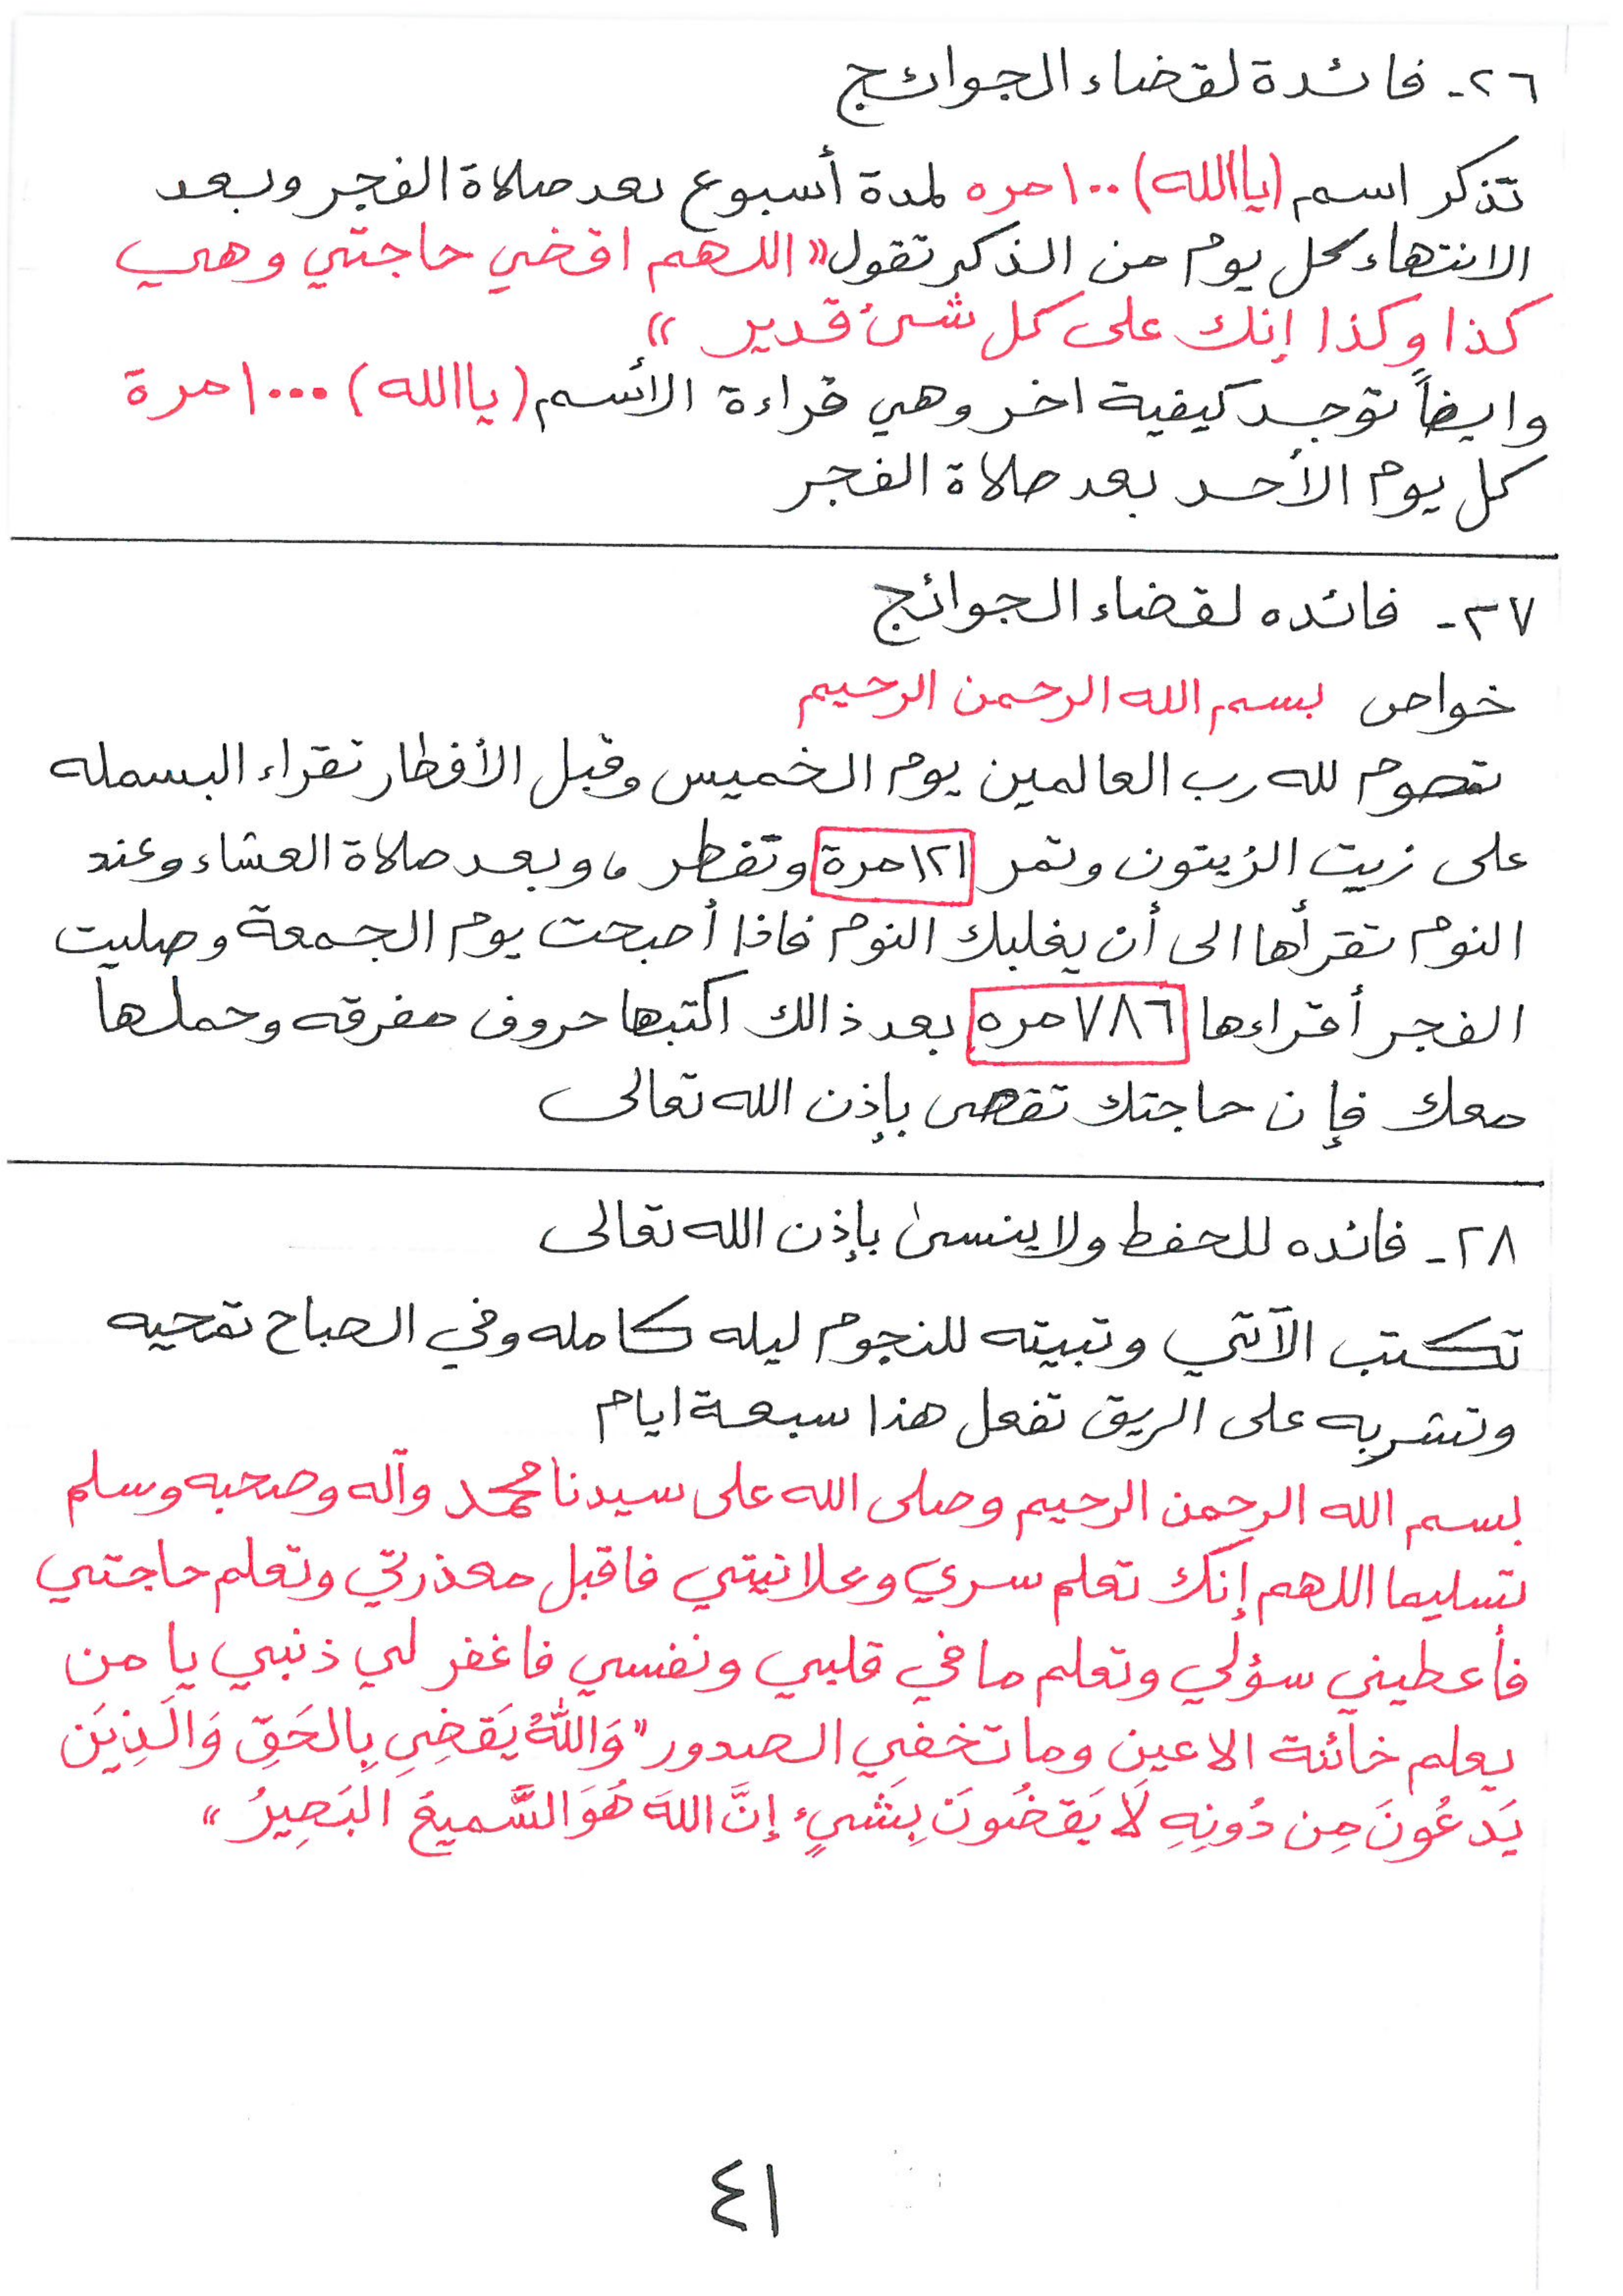 ٢٦- فائدة لقضاء الحوائج
تذكر اسم (ياالله) ١٠٠مره لمدة أسبوع بعد صلاة الفجر وبعد
الانتهاء كل يوم من الذكر تقول «اللهم اقضي حاجتي وهي
كذا وكذا إنك على كل شئ قدير»
وايضاً توجد كيفية اخر وهي قراءة الأسم (ياالله) ١٠٠٠مرة
كل يوم الأحد بعد صلاة الفجر
٢٧- فائده لقضاء الحوائج
خواص بسم الله الرحمن الرحيم
تصوم لله رب العالمين يوم الخميس وقبل الأفطار تقراء البسمله
على زيت الزيتون وتمر ١٢١مرة وتفطر، وبعد صلاة العشاء وعند
النوم تقرأها الى أن يغلبك النوم فاذا أصبحت يوم الجمعة وصليت
الفجر أقراءها ٧٨٦مره بعد ذالك اكتبها حروف مفرقه وحملها
معك فإن حاجتك تقضى بإذن الله تعالى
٢٨- فائده للحفظ ولا ينسى بإذن الله تعالى
تكتب الآتي وتبيته للنجوم ليله كامله وفي الصباح تمحيه
وتشربه على الريق تفعل هذا سبعة ايام
بسم الله الرحمن الرحيم وصلى الله على سيدنا محمد وآله وصحبه وسلم
تسليما اللهم إنك تعلم سري وعلانيتي فاقبل معذرتي وتعلم حاجتي
فأعطيني سؤلي وتعلم ما في قلبي ونفسي فاغفر لي ذنبي يا من
يعلم خائنة الاعين وما تخفي الصدور "وَاللهُ يَقضِي بِالحَقِّ وَالَذِيَن
يَدعُونَ مِن دُونِهِ لَا يَقضُونَ بِشَيءٍ إِنَّ اللهَ هُوَ السَّميعُ البَصِيرُ"
٤١